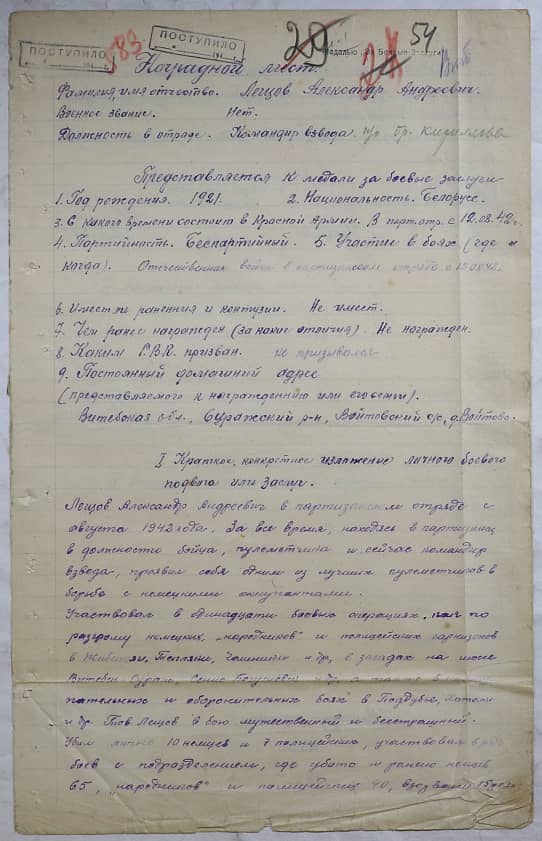 ПОСТУПИЛО
ПОСТУПИЛО
83
29
54
24
Медалью „За Боевые Заслуги"
Наградной лист.
Фамилия, имя отчество. Лещов Александр Андреевич.
Военное звание. Нет.
Должность в отряде. Командир взвода п/о бр. Кириллова
Представляется к медали за боевые заслуги
1. Год рождения. 1921. 2. Национальность. Белорусс.
3. С какого времени состоит в Красной Армии. В парт. отр. с 12.08.42 г.
4. Партийность. Беспартийный. 5. Участие в боях (где и
когда). Отечественная война в партизанском отряде с 12.08.42.
6. Имеет ли ранения и контузии. Не имеет.
7. Чем ранее награжден (за какие отличия). Не награжден.
8. Каким Р.В.К. призван. не призывался
9. Постоянный домашний адрес
(представляемого к награждению или его семьи).
Витебская обл., Суражский р-н, Войтовский с/с, д. Войтово.
I Краткое, конкретное изложение личного боевого
подвига или заслуг.
Лещов Александр Андреевич в партизанском отряде с
августа 1942 года. За все время, находясь в партизанах
в должности бойца, пулеметчика и сейчас командир
взвода, проявил себя одним из лучших пулеметчиков в
борьбе с немецкими оккупантами.
Участвовал в одинадцати боевых операциях, по
разгрому немецких, „народников" и полицейских гарнизонов
в и др, в засадах на шоссе
Витебск Сураж, и др, а также в
и оборонительных боях в
и др. Тов Лещов в бою мужественный и бесстрашный.
Убил лично 10 немцев и 7 полицейских, участвовал в
боев с подразделением, где убито и ранено немцев
65, „народников" и полицейских 40, взорвано